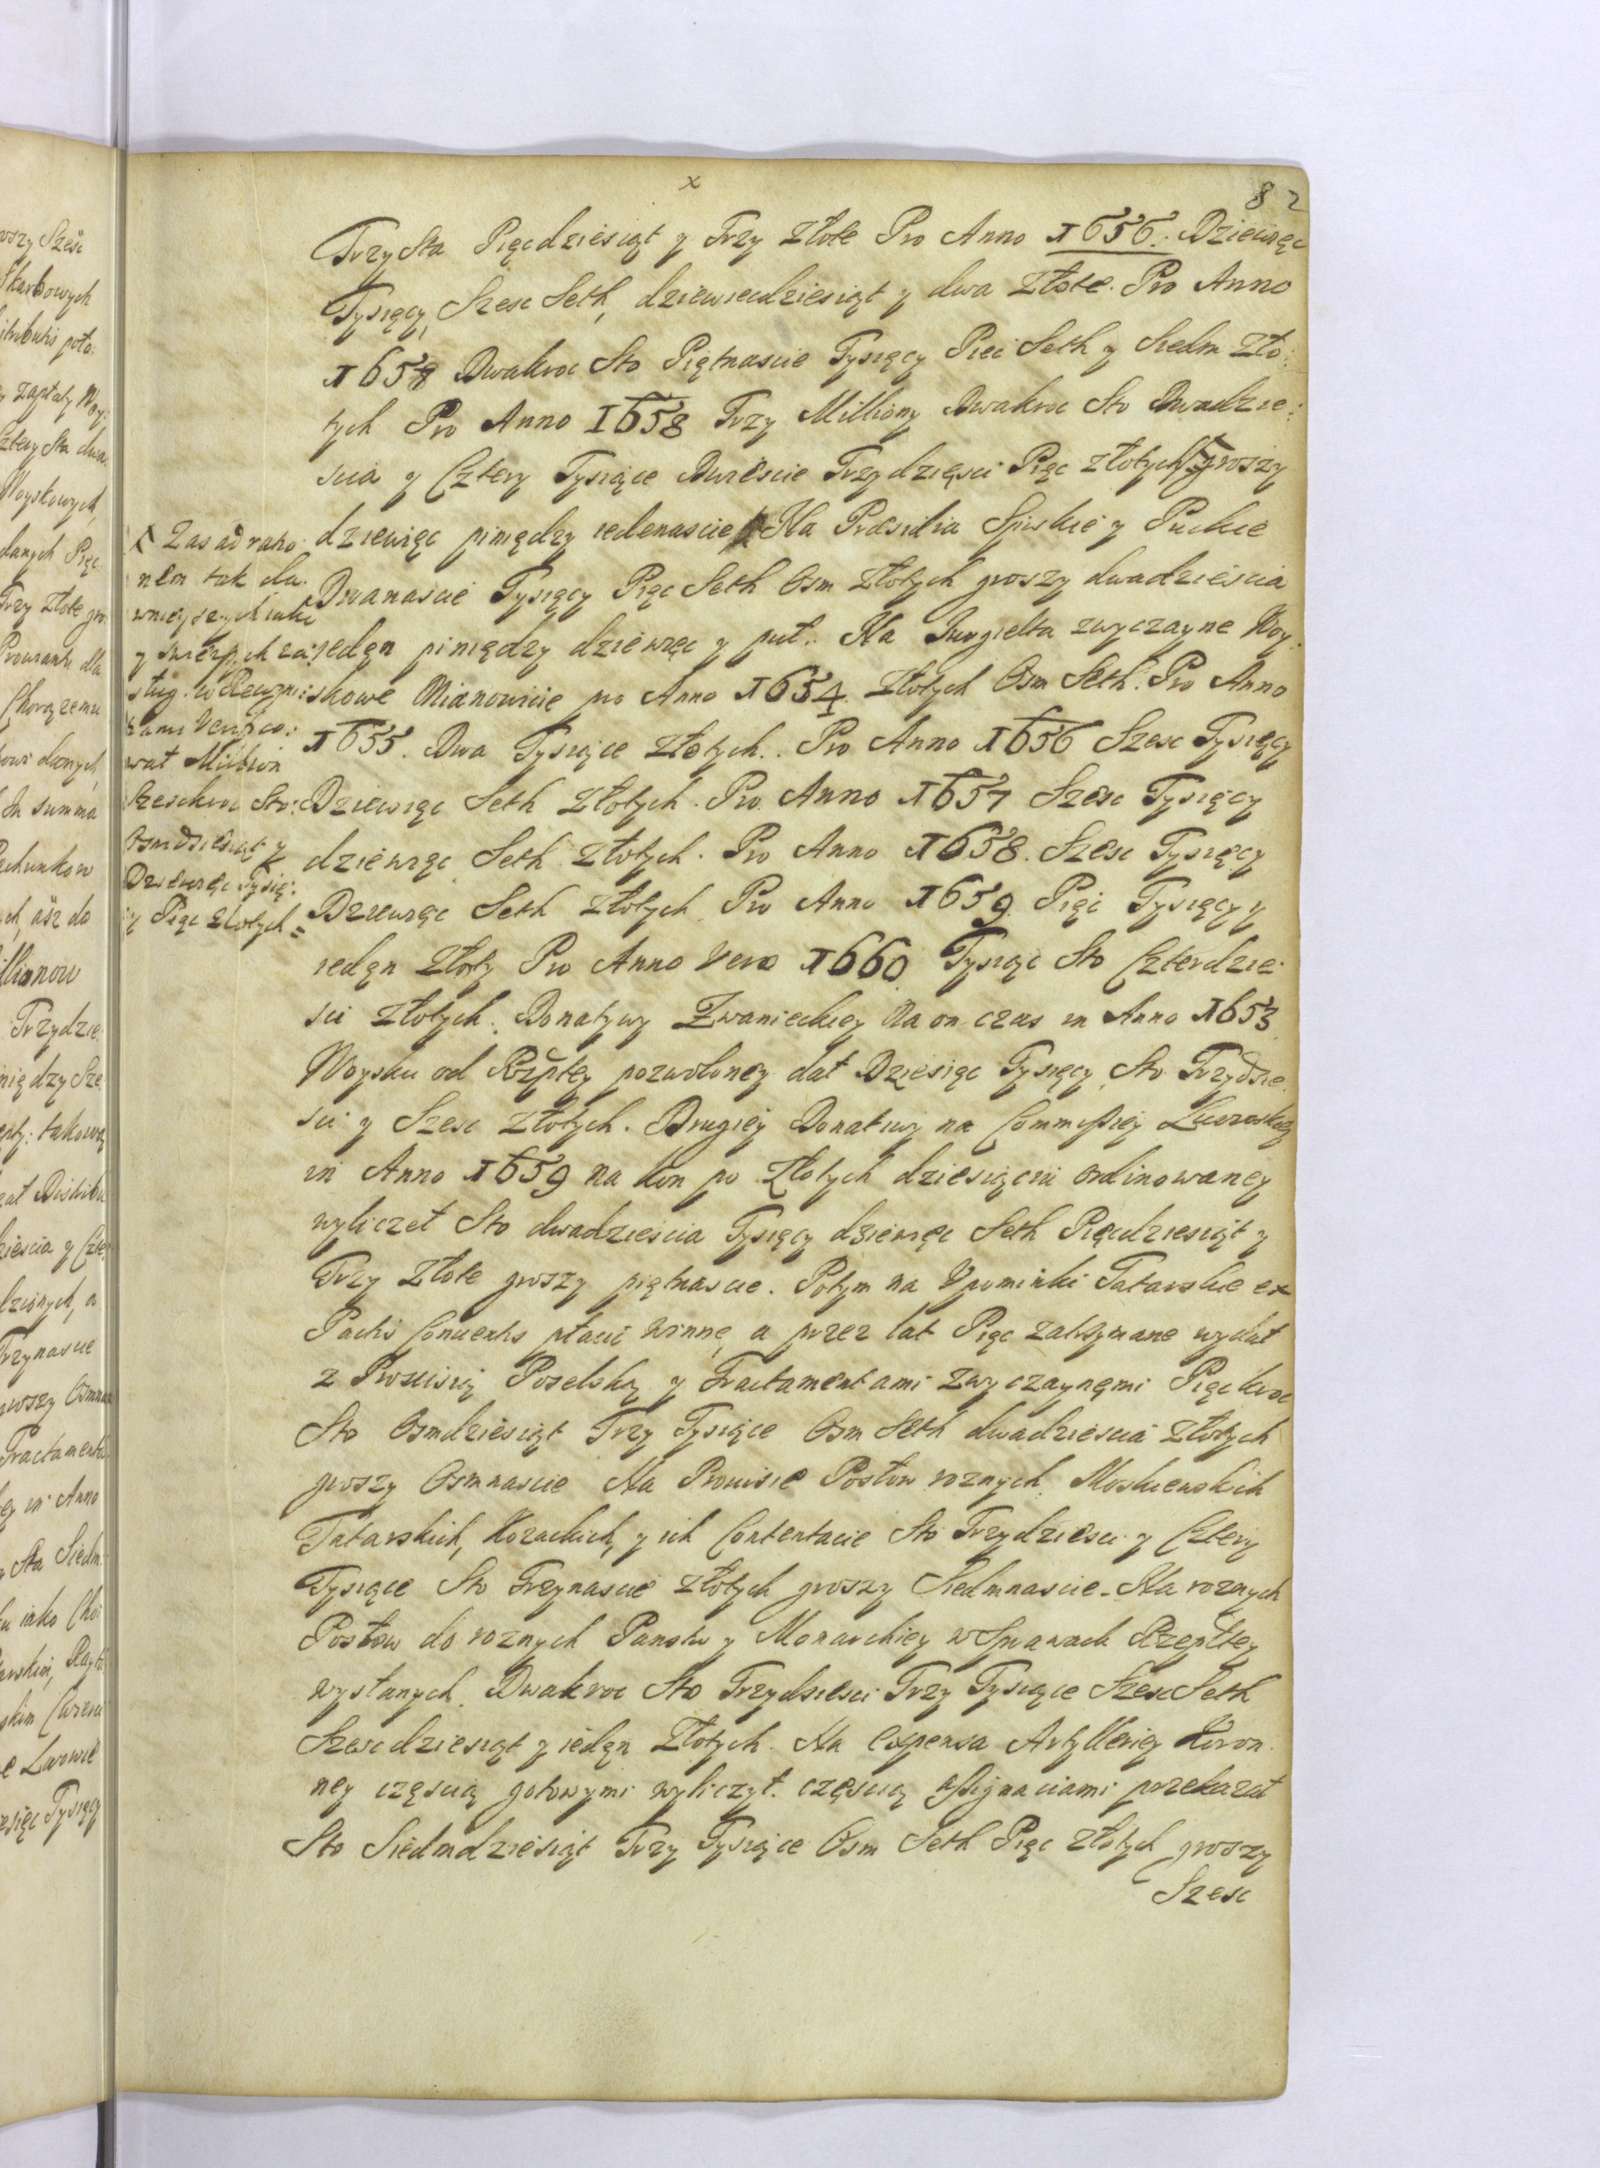 x
82
Trzy Sta Pięcdziesiąt y Trzy złote Pro Anno 1656. Dziewięc
Tysięcy, Szesc Seth, dziewiecdziesiąt y dwa złote. Pro Anno
1657 Dwakroc Sto Piętnascie Tysięcy Pieć Seth y Siedm Zło:
tych Pro Anno 1658 Trzy Milliony Dwakroc Sto Dwadzie:
scia y Cztery Tysiące Dwieście Trzydzięsci Pięc złotych groszy
dziewięc piniędzy iedenascie Na Praesidia Spiskie y Puckie
Dwanascie Tysięcy Pięc Seth Osm złotych groszy dwadzieścia
jedęn piniędzy dziewięc y puł. Na Jurgielta zwyczayne Woy:
skowe Mianowicie pro Anno 1654. Złotych Osm Seth. Pro Anno
1655. Dwa Tysiące złotych. Pro Anno 1656 Szesc Tysięcy
Dziewięc Seth złotych. Pro Anno 1657 Szesc Tysięcy
dziewięc Seth złotych. Pro Anno 1658. Szesc Tysięcy
Dziewięc Seth złotych Pro Anno 1659. Pięć Tysięcy y
iedęn złoty Pro Anno Vero 1660 Tysiąc Sto Czterdzie
sci złotych. Donatywy Zwanieckiey Na on czas in Anno 1653
Woysku od Rzptey pozwoloney dał Dziesięc Tysięcy Sto Trzydzie
sci y Szesc złotych. Drugiey Donatiwy na Commissiey Lwowskiey
in Anno 1659 na kon po złotych dziesięciu ordinowaney
wyliczeł Sto dwadzieścia Tysięcy dziewięc Seth Pięcdziesiąt y
Trzy złote groszy piętnascie. Potym na Upominki Tatarskie ex
Pactis Conventis płacić winne, a przez lat Pięc zatrzymane wydał
z Prowisią Poselską y Tractamentami zwyczaynęmi Pięckroc
Sto Osmdziesiąt Trzy Tysiące Osm Seth dwadzieścia złotych
groszy Osmnascie Na Prowisie Posłow roznych Moskiewskich
Tatarskich, Kozackich, y ich Contentacie Sto Trzydziesci y Cztery
Tysiące Sto Trzynascie złotych groszy Siedmnascie. Na roznych
Posłow do roznych Panstw y Monarchiey w Sprawach Rzeptey
wysłanych. Dwakroc Sto Trzydziesci Trzy Tysiące Szesc Seth
Szescdziesiąt y iedęn złotych. Na Expensa Artylleriey Koron
ney częscią gotowymi wyliczył. częscią assignaciami przekazał
Sto Siedmdziesiąt Trzy Tysiące Osm Seth Pięc złotych groszy
Szesc
Zas ad ratio
nem tak da
wnieyszych iako
y swieżych za
sług
zami Verifico:
wał Million
Szesckroc Sto
Osmdziesiąt y
Dziewięc Tysię:
y Pięc złotych